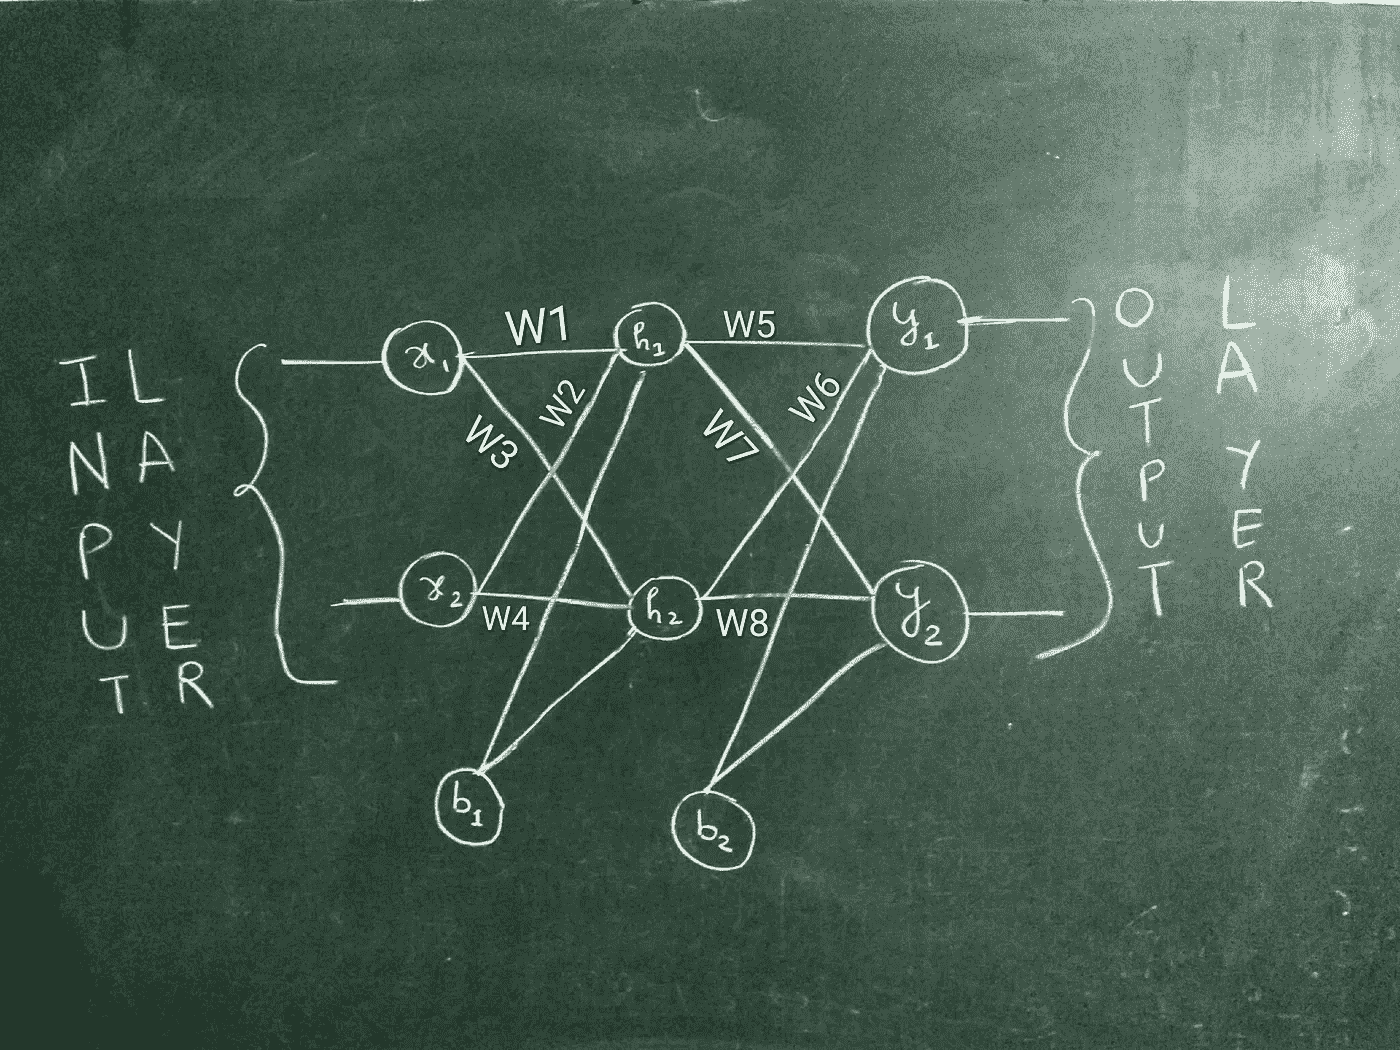 INPUT
LAYER
x₁
x₂
W1
W2
W3
W4
h₁
h₂
b₁
W5
W6
W7
W8
y₁
y₂
b₂
OUTPUT
LAYER